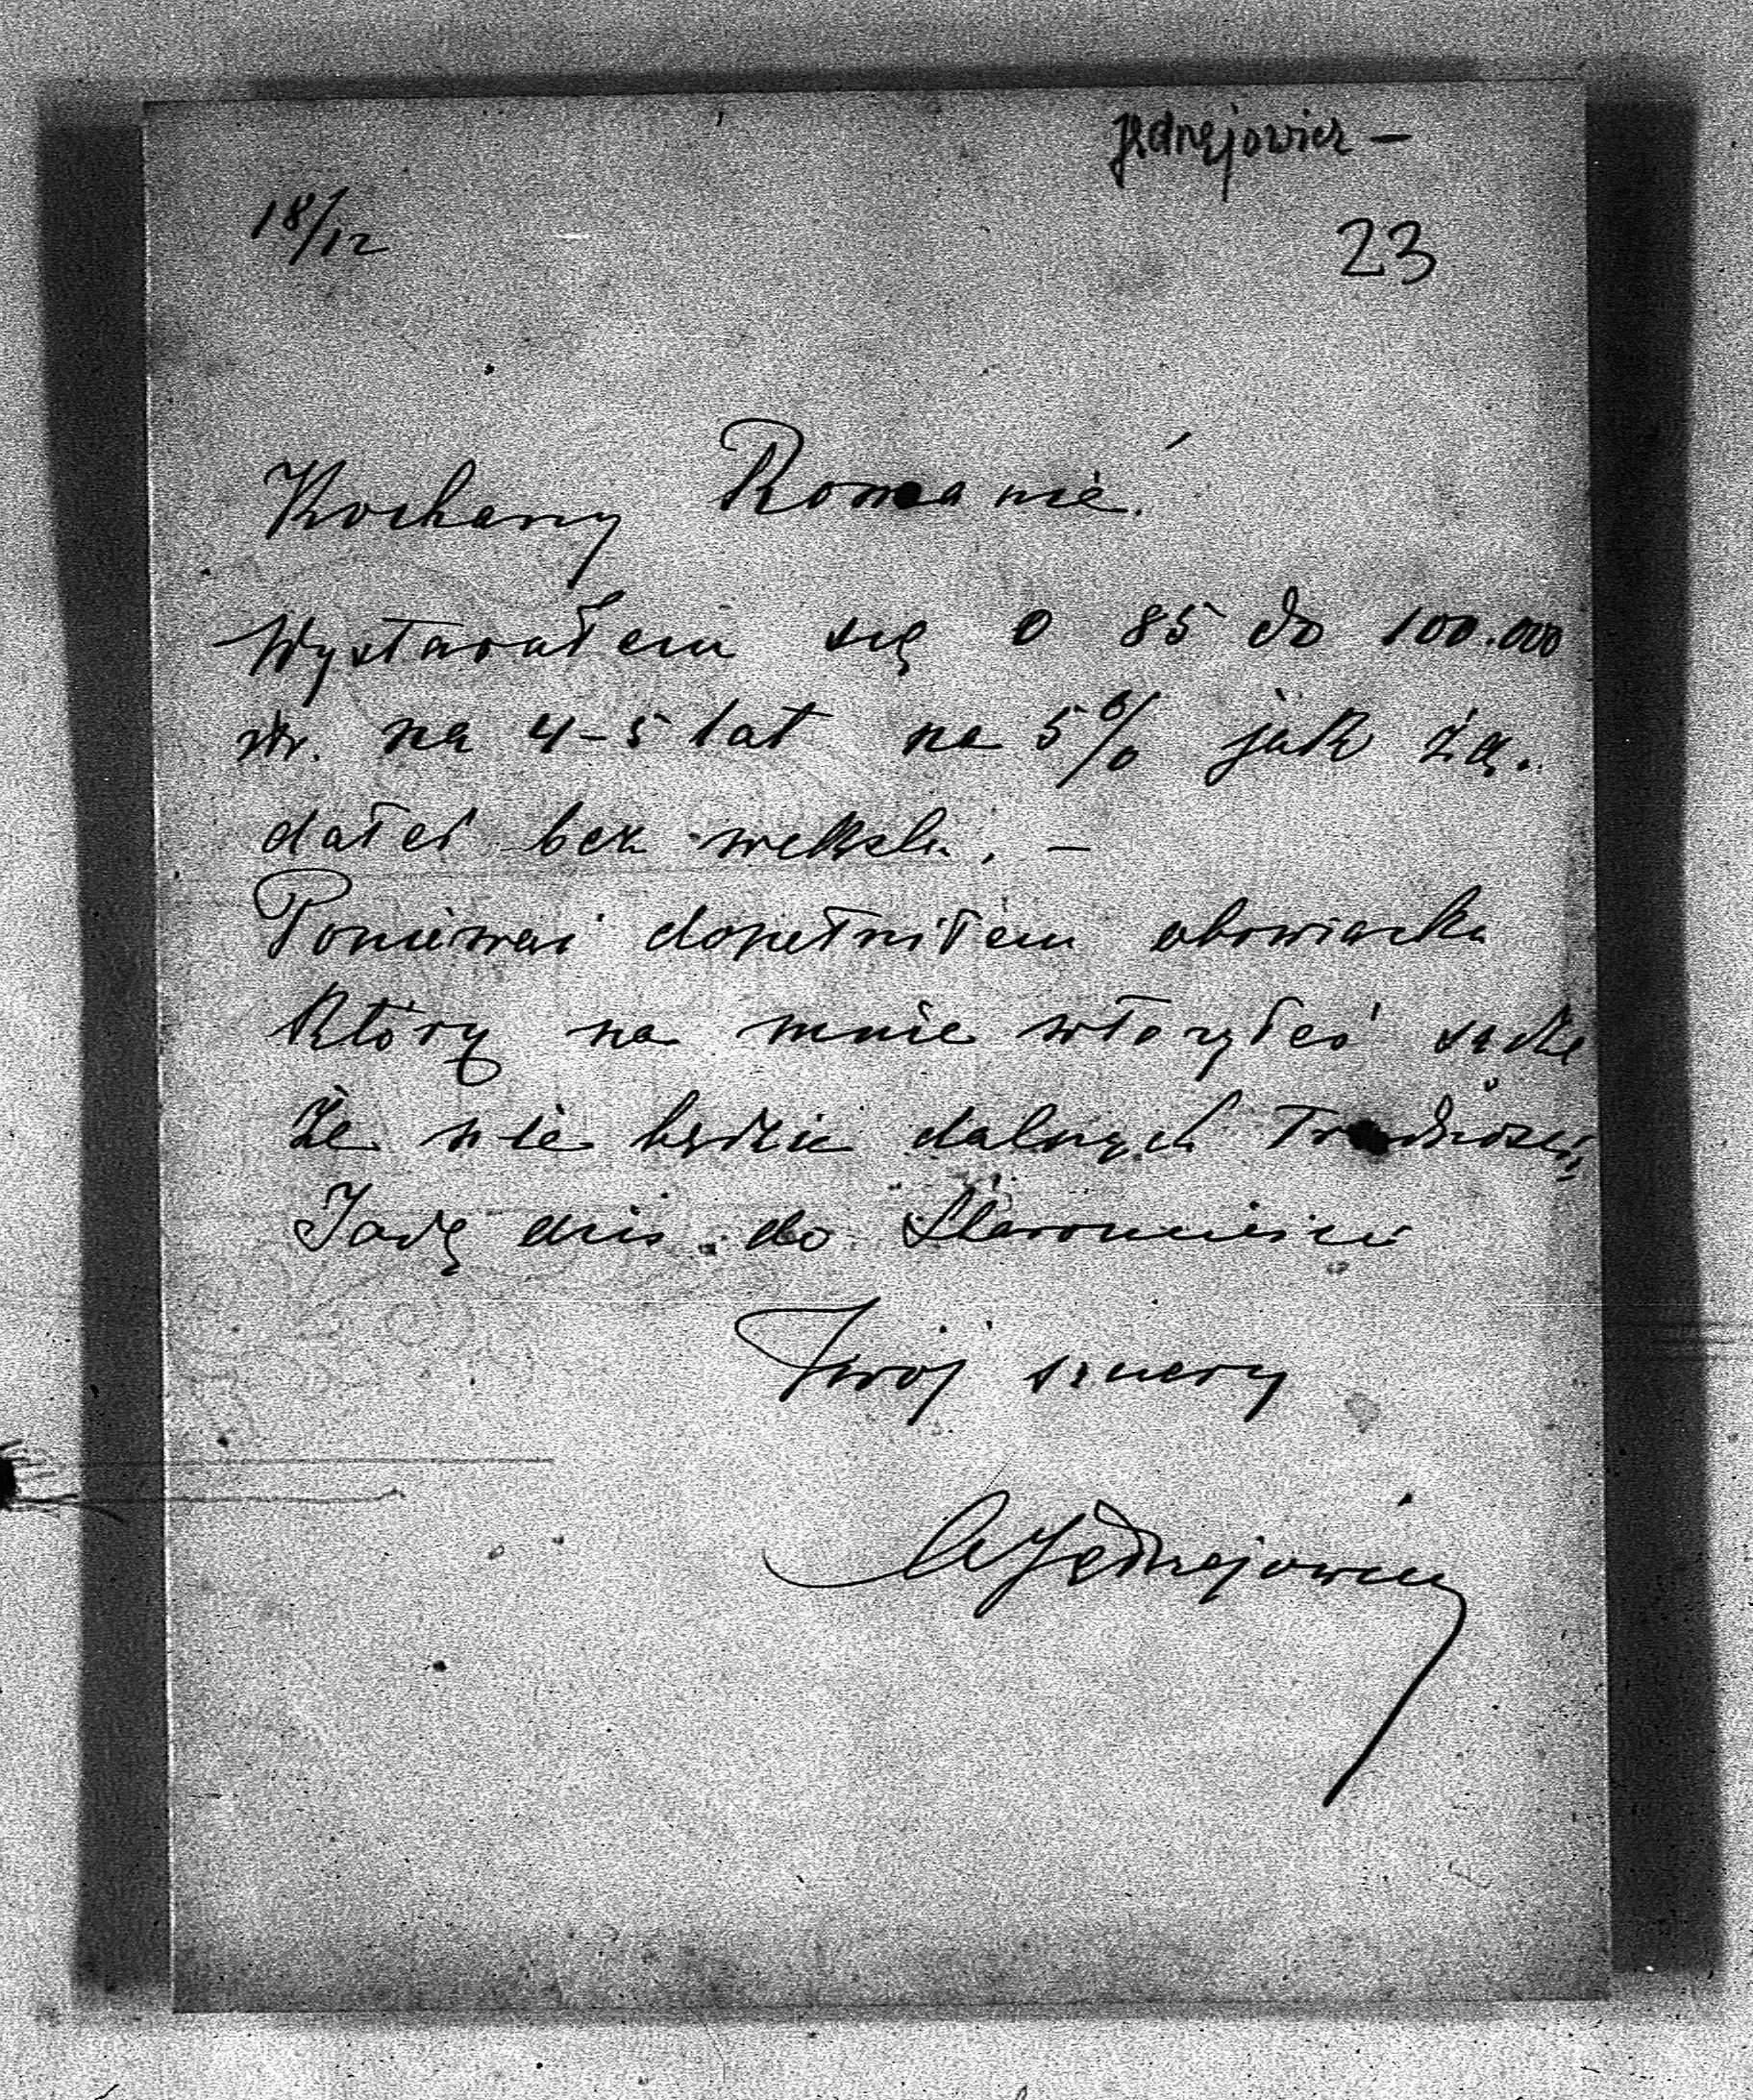 Jędrzejowicz –
18/12
23
Kochany Romanie!
Wystarałem się o 85 do 100.000
złr. na 4-5 lat na 5% jak żą-
dałeś bez wekslu. –
Ponieważ dopełniłem obowiązku
który na mnie włożyłeś sądzę
że nie będzie dalszych trudności,
Jadę dziś do Staromieścia
Twój szczery
AJędrzejowicz